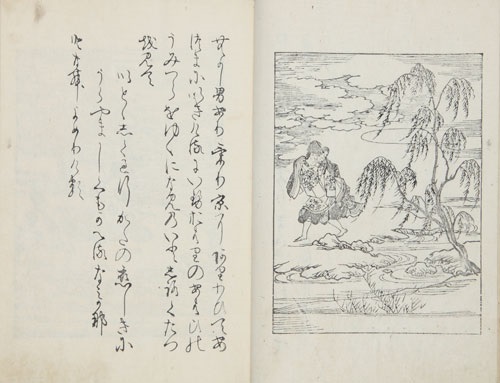 むかし男ありけり京にありわひてあ
つまにいきけるにいせおはりのあはひの
うみつらをゆくになみのいとしろくたつ
を見て
いとゝしく過行かたの恋しきに
うらやましくもかへるなみかな
となむよめりける